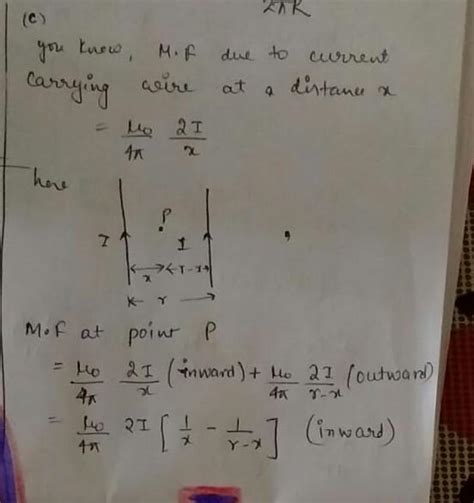 2πR
(c)
you know, M.F due to current
Carrying wire at a distance x
= μ₀/4π 2I/x
here
P
I I
x r-x
r
M.F at point P
= μ₀/4π 2I/x (inward) + μ₀/4π 2I/r-x (outward)
= μ₀/4π 2I [1/x - 1/r-x] (inward)